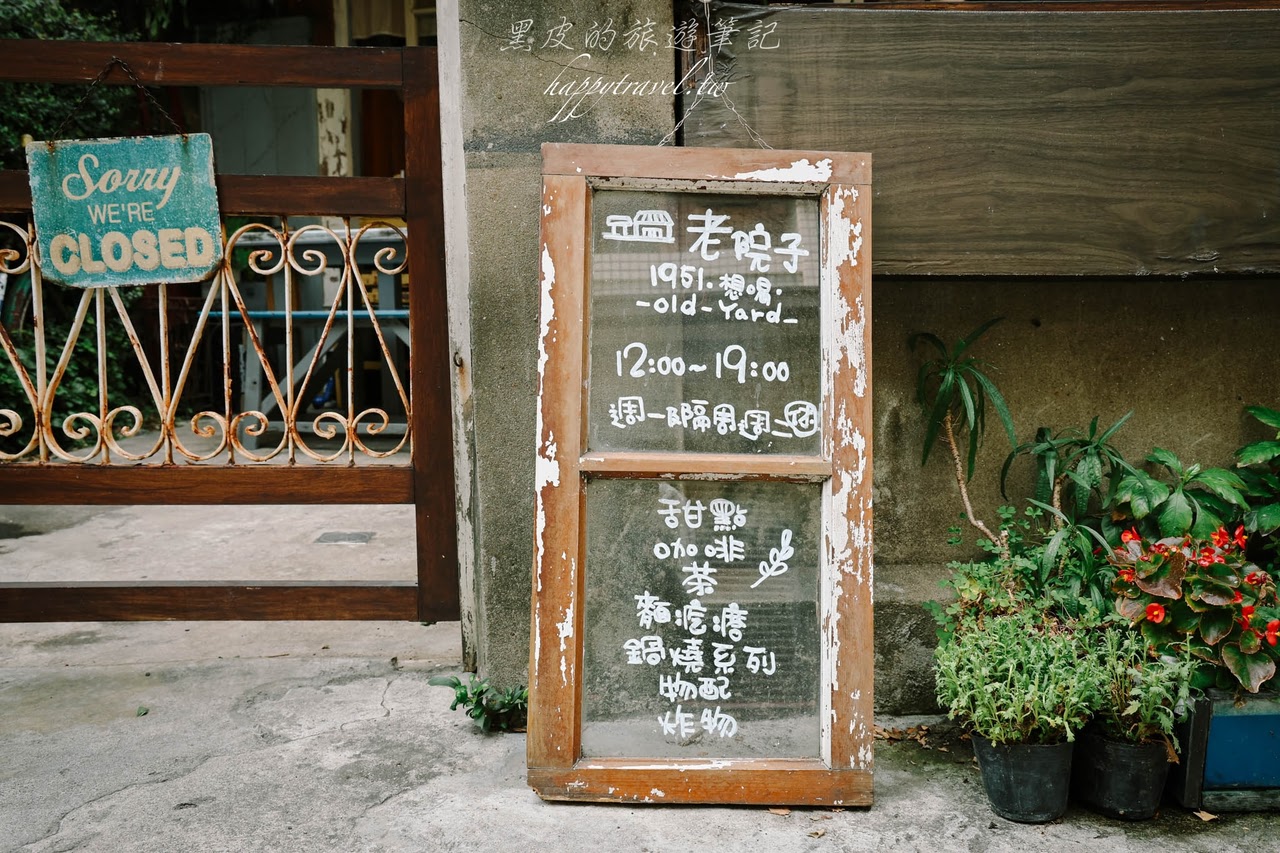 黑皮的旅遊筆記
happytravel.tw
Sorry
WE'RE
CLOSED
老院子
1951.想喝.
-old-Yard-
12:00~19:00
週一隔周週二團
甜點
咖啡
茶
麵疙瘩
鍋燒系列
物配
炸物